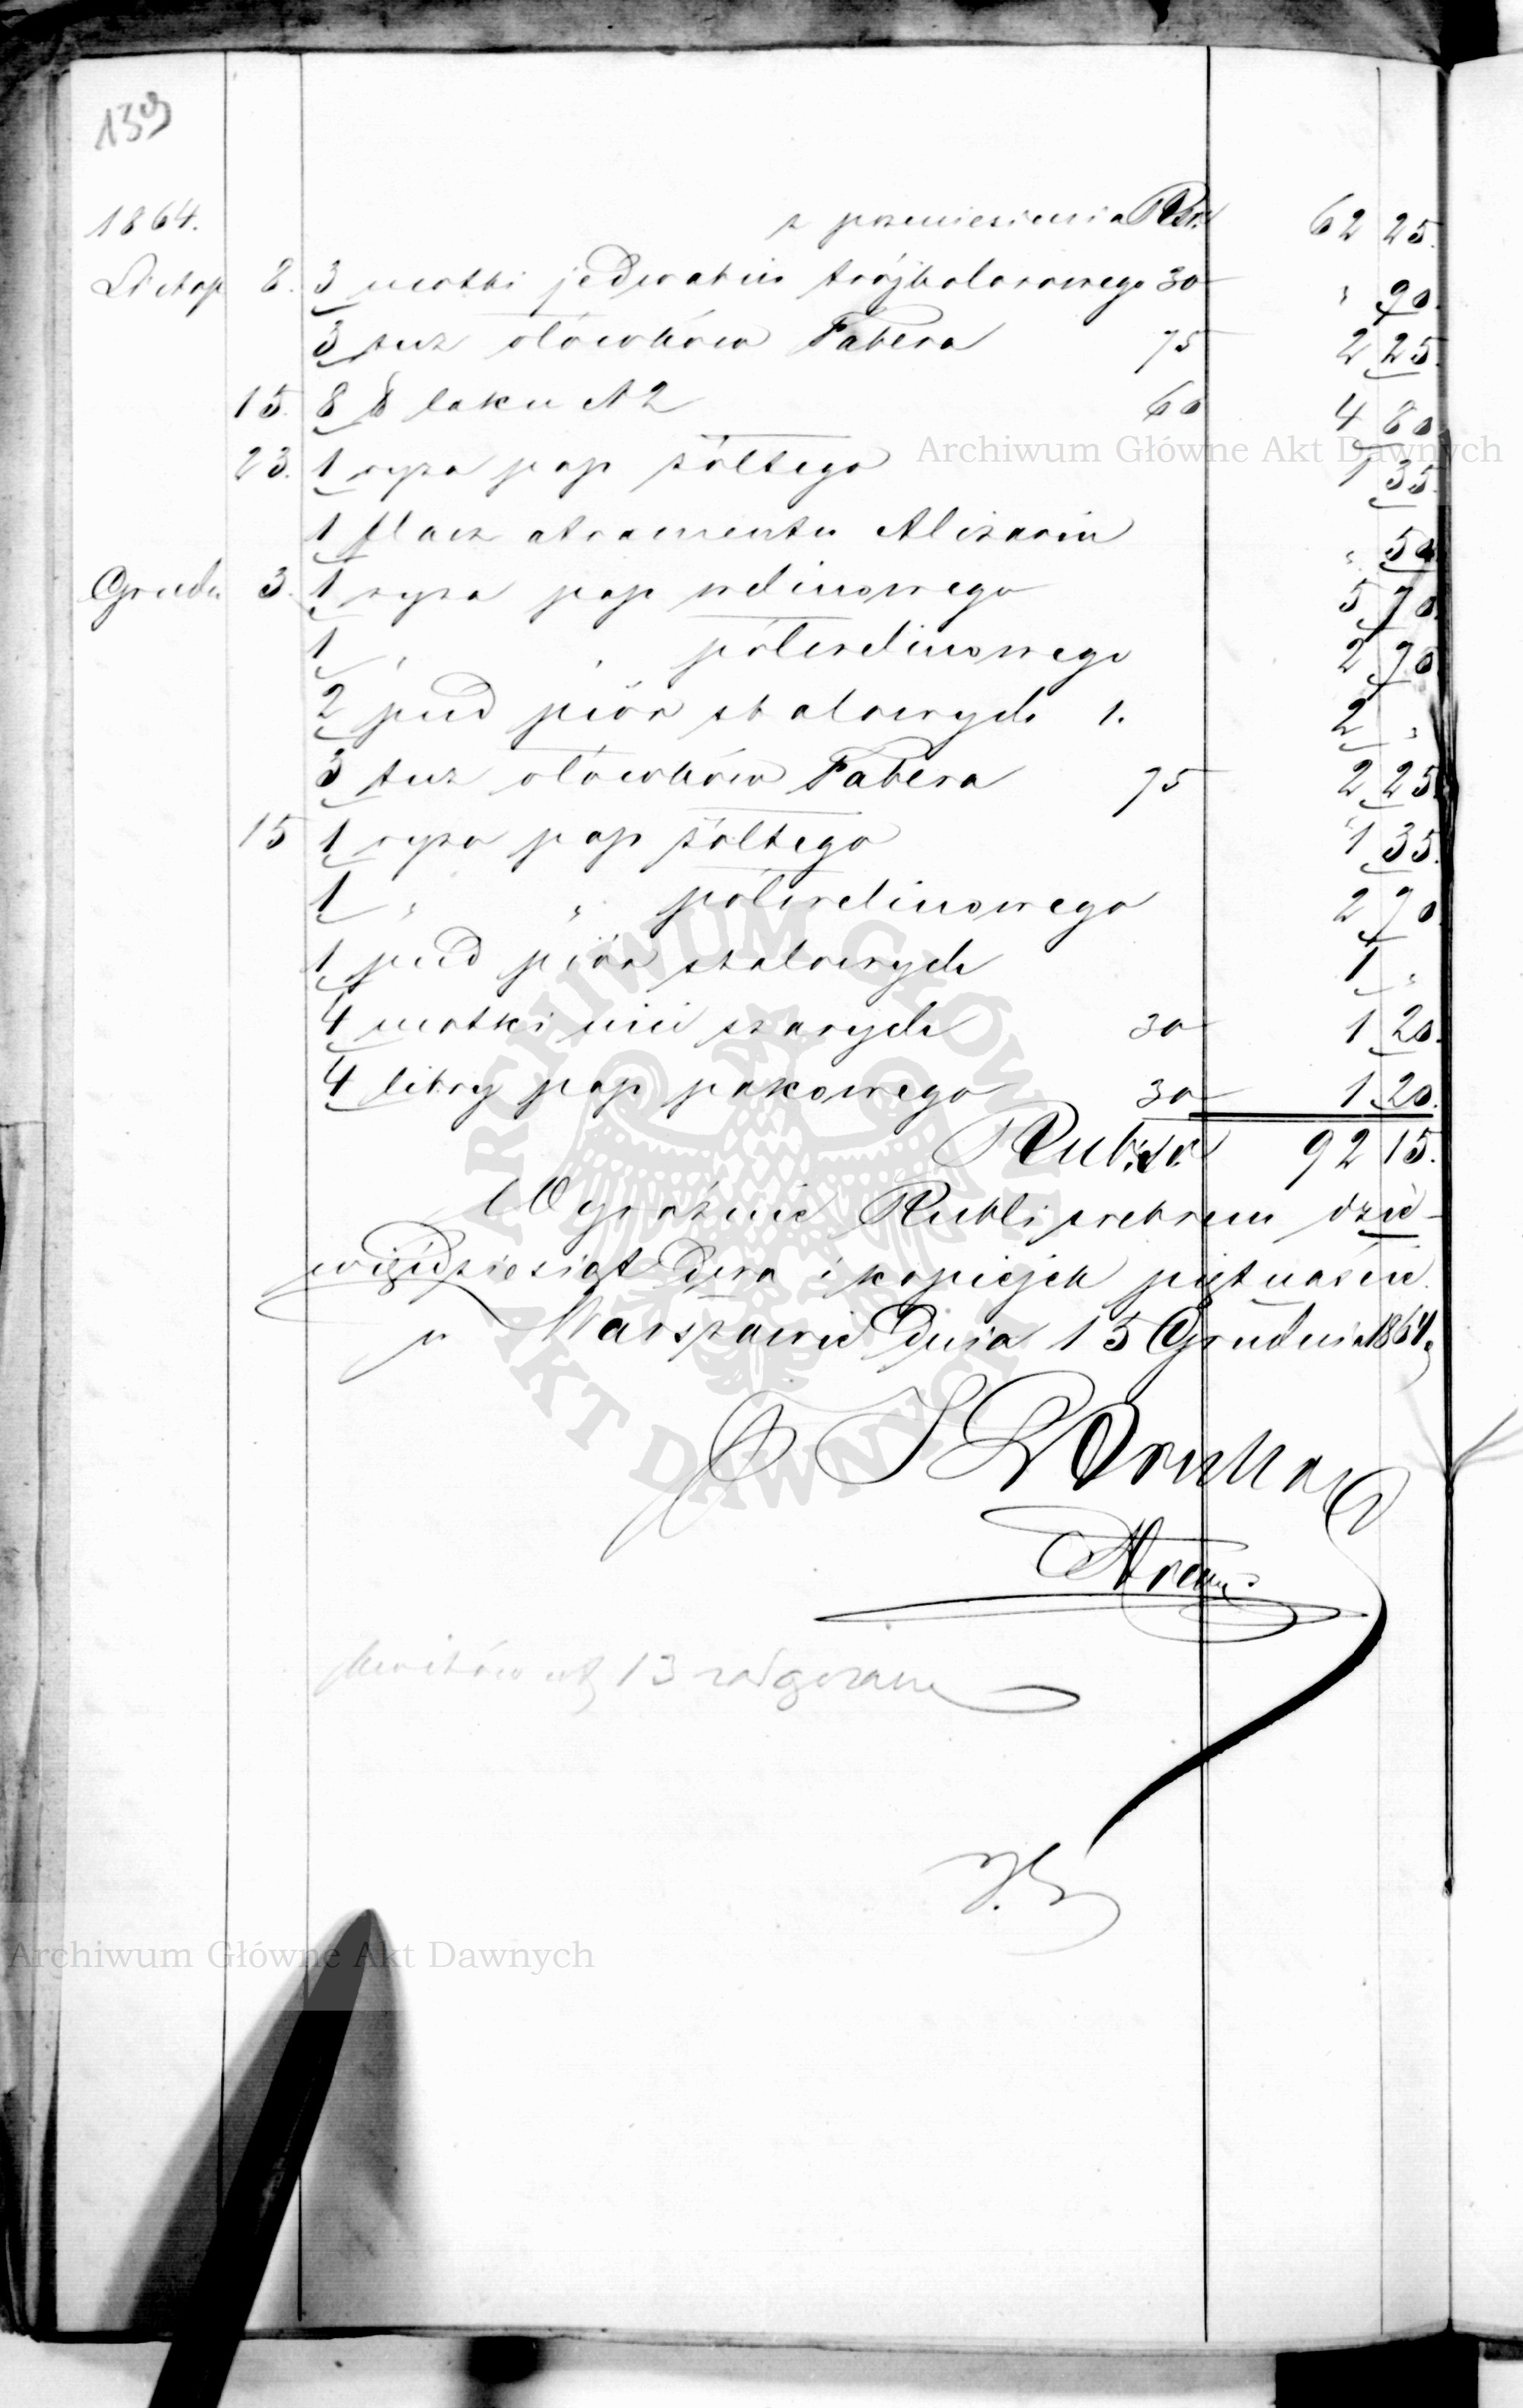 139
1864. z przeniesienia Rsr. 62 25.
Listop 8. 3 motki jedwabiu trójkolorowego 30 " 90.
3 tuz ołówków Fabera 75 2 25.
15. 8 ℔ laku N 2 60 4 80.
Archiwum Główne Akt Dawnych
23. 1 ryza pap żółtego 1 35.
1 flasz atramentu Alizarin " 50
Grudn 3. 1 ryza pap welinowego 5 70.
1 " " półwelinowego 2 70
2 pud piór stalowych 1. 2 "
3 tuz ołówków Fabera 75 2 25.
15 1 ryza pap żółtego 1 35.
1 " " półwelinowego 2 70
1 pud piór stalowych 1 "
4 motki nici szarych 30 1 20.
4 libry pap pakowego 30 1 20.
Rub: sr. 92 15.
Wyraźnie Rubli srebrem dzie-
więćdziesiąt dwa i kopiejek piętnaście.
w Warszawie Dnia 15 Grudnia 1864
13
ARCHIWUM GŁÓWNE AKT DAWNYCH
Archiwum Główne Akt Dawnych